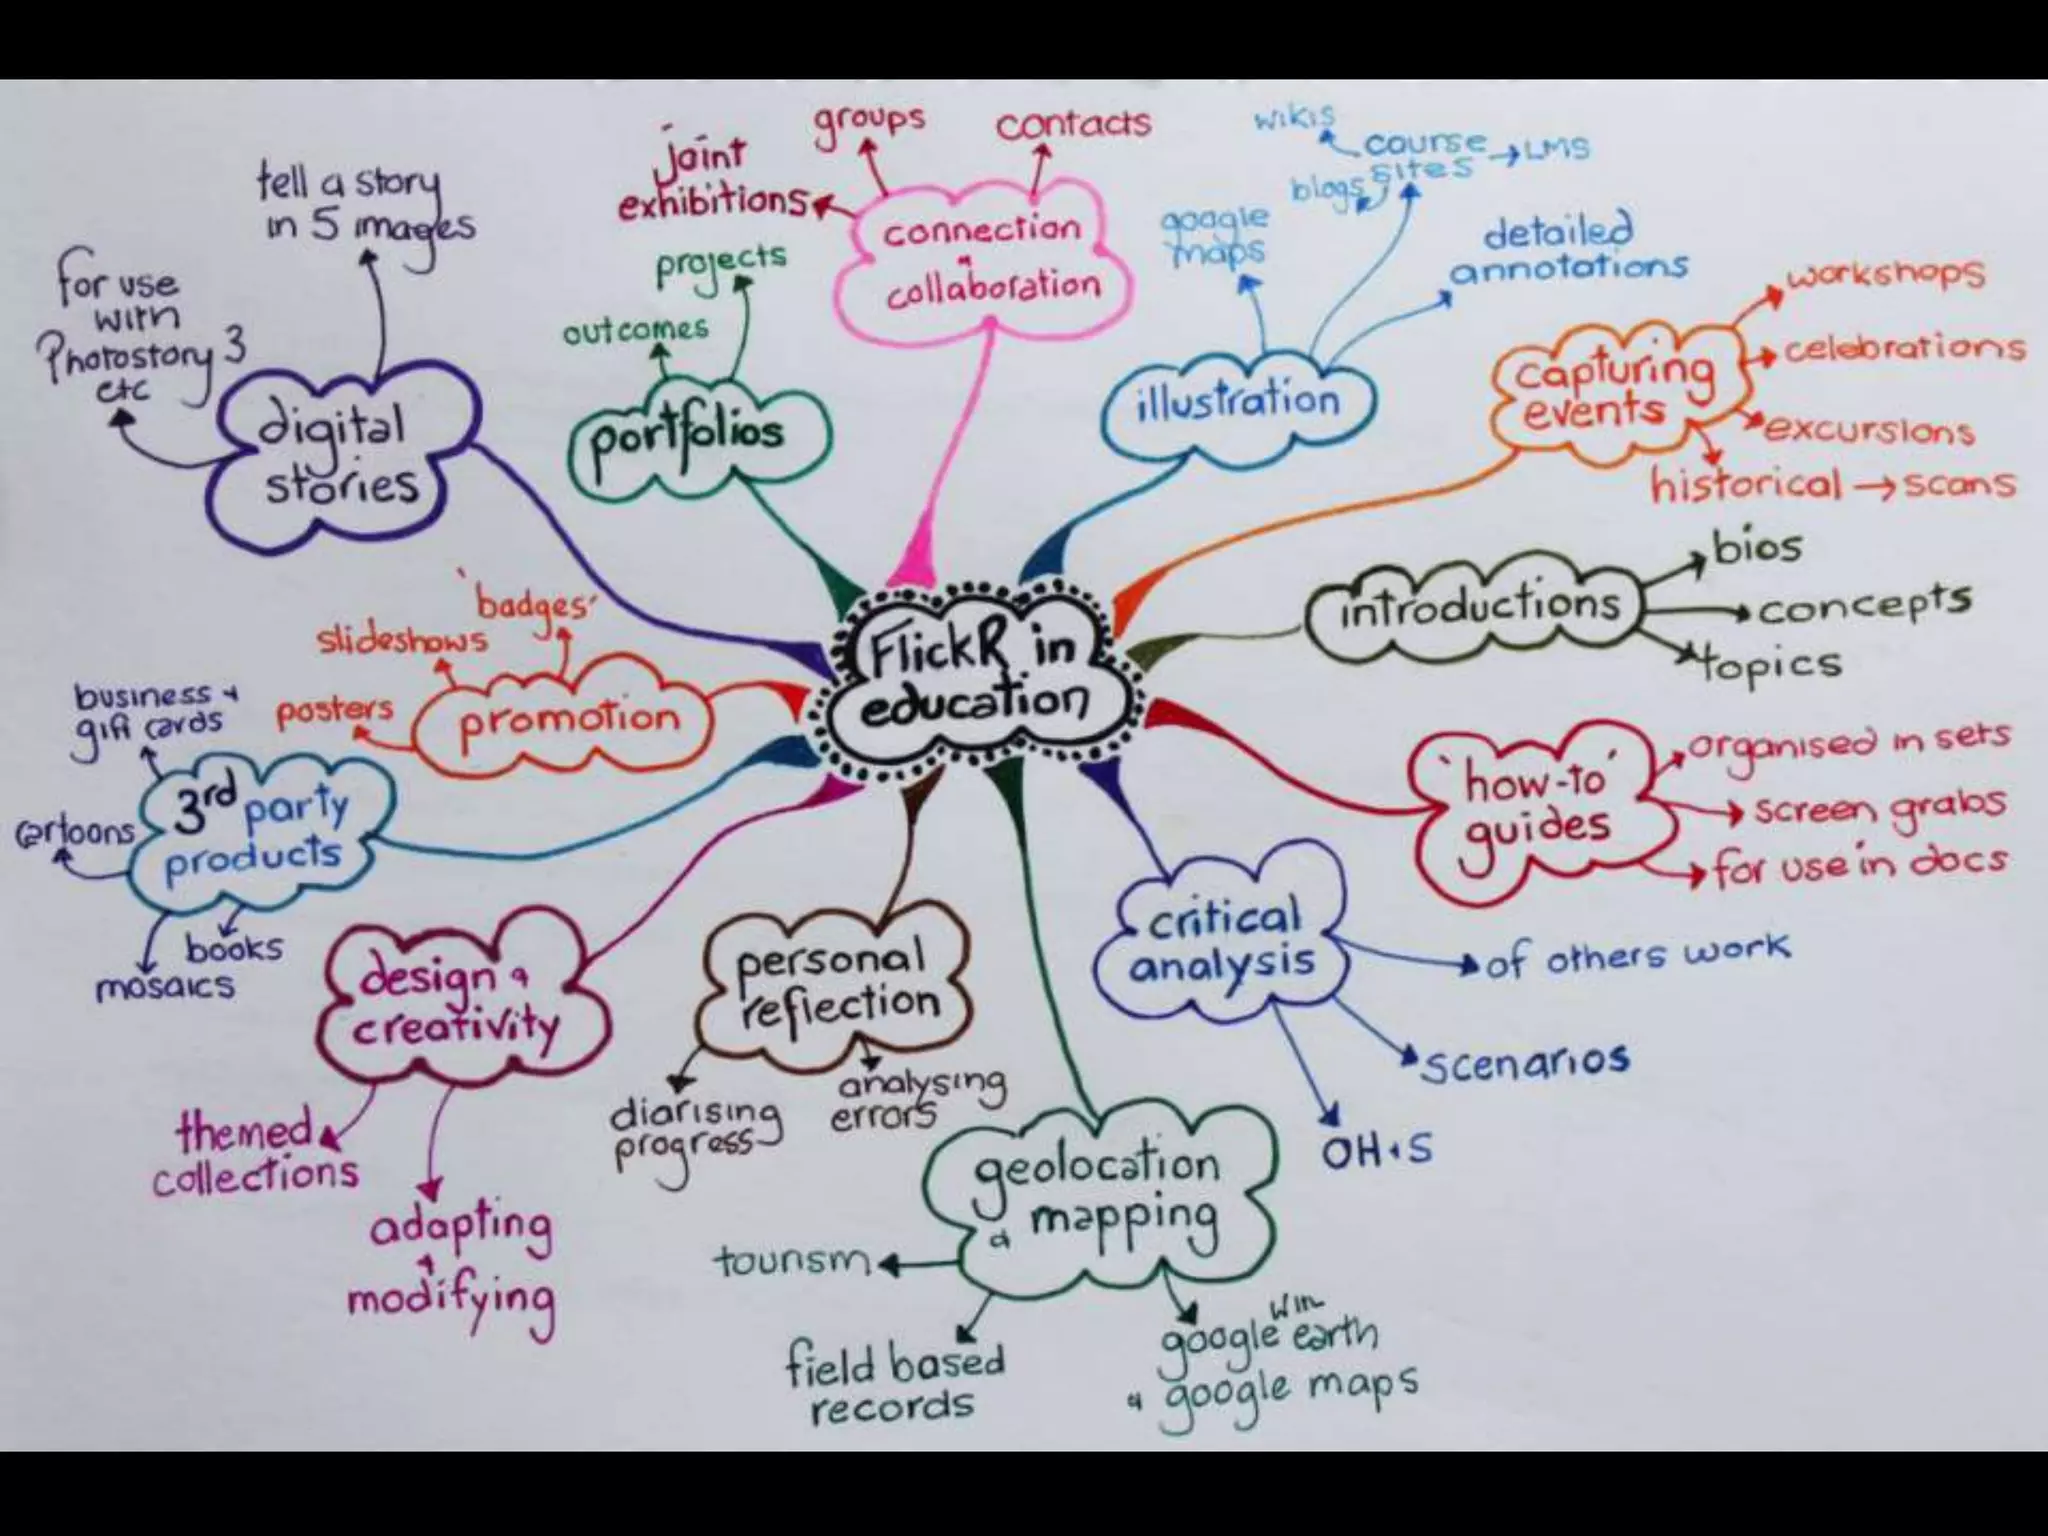 FlickR in
education
connection
&
collaboration
joint
exhibitions
groups
contacts
illustration
google
maps
course
sites
wikis
blogs
LMS
detailed
annotations
capturing
events
workshops
celebrations
excursions
historical → scans
introductions
bios
concepts
topics
'how-to'
guides
organised in sets
screen grabs
for use in docs
critical
analysis
of others work
scenarios
OH+S
geolocation
& mapping
tourism
field based
records
win
google earth
& google maps
personal
reflection
diarising
progress
analysing
errors
design &
creativity
themed
collections
adapting
+
modifying
3rd party
products
business +
gift cards
cartoons
mosaics
books
promotion
posters
slideshows
'badges'
digital
stories
for use
with
Photostory 3
etc
tell a story
in 5 images
portfolios
outcomes
projects